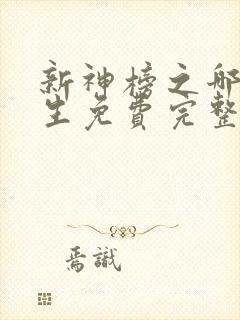 新神榜之哪
生免費完整
焉識